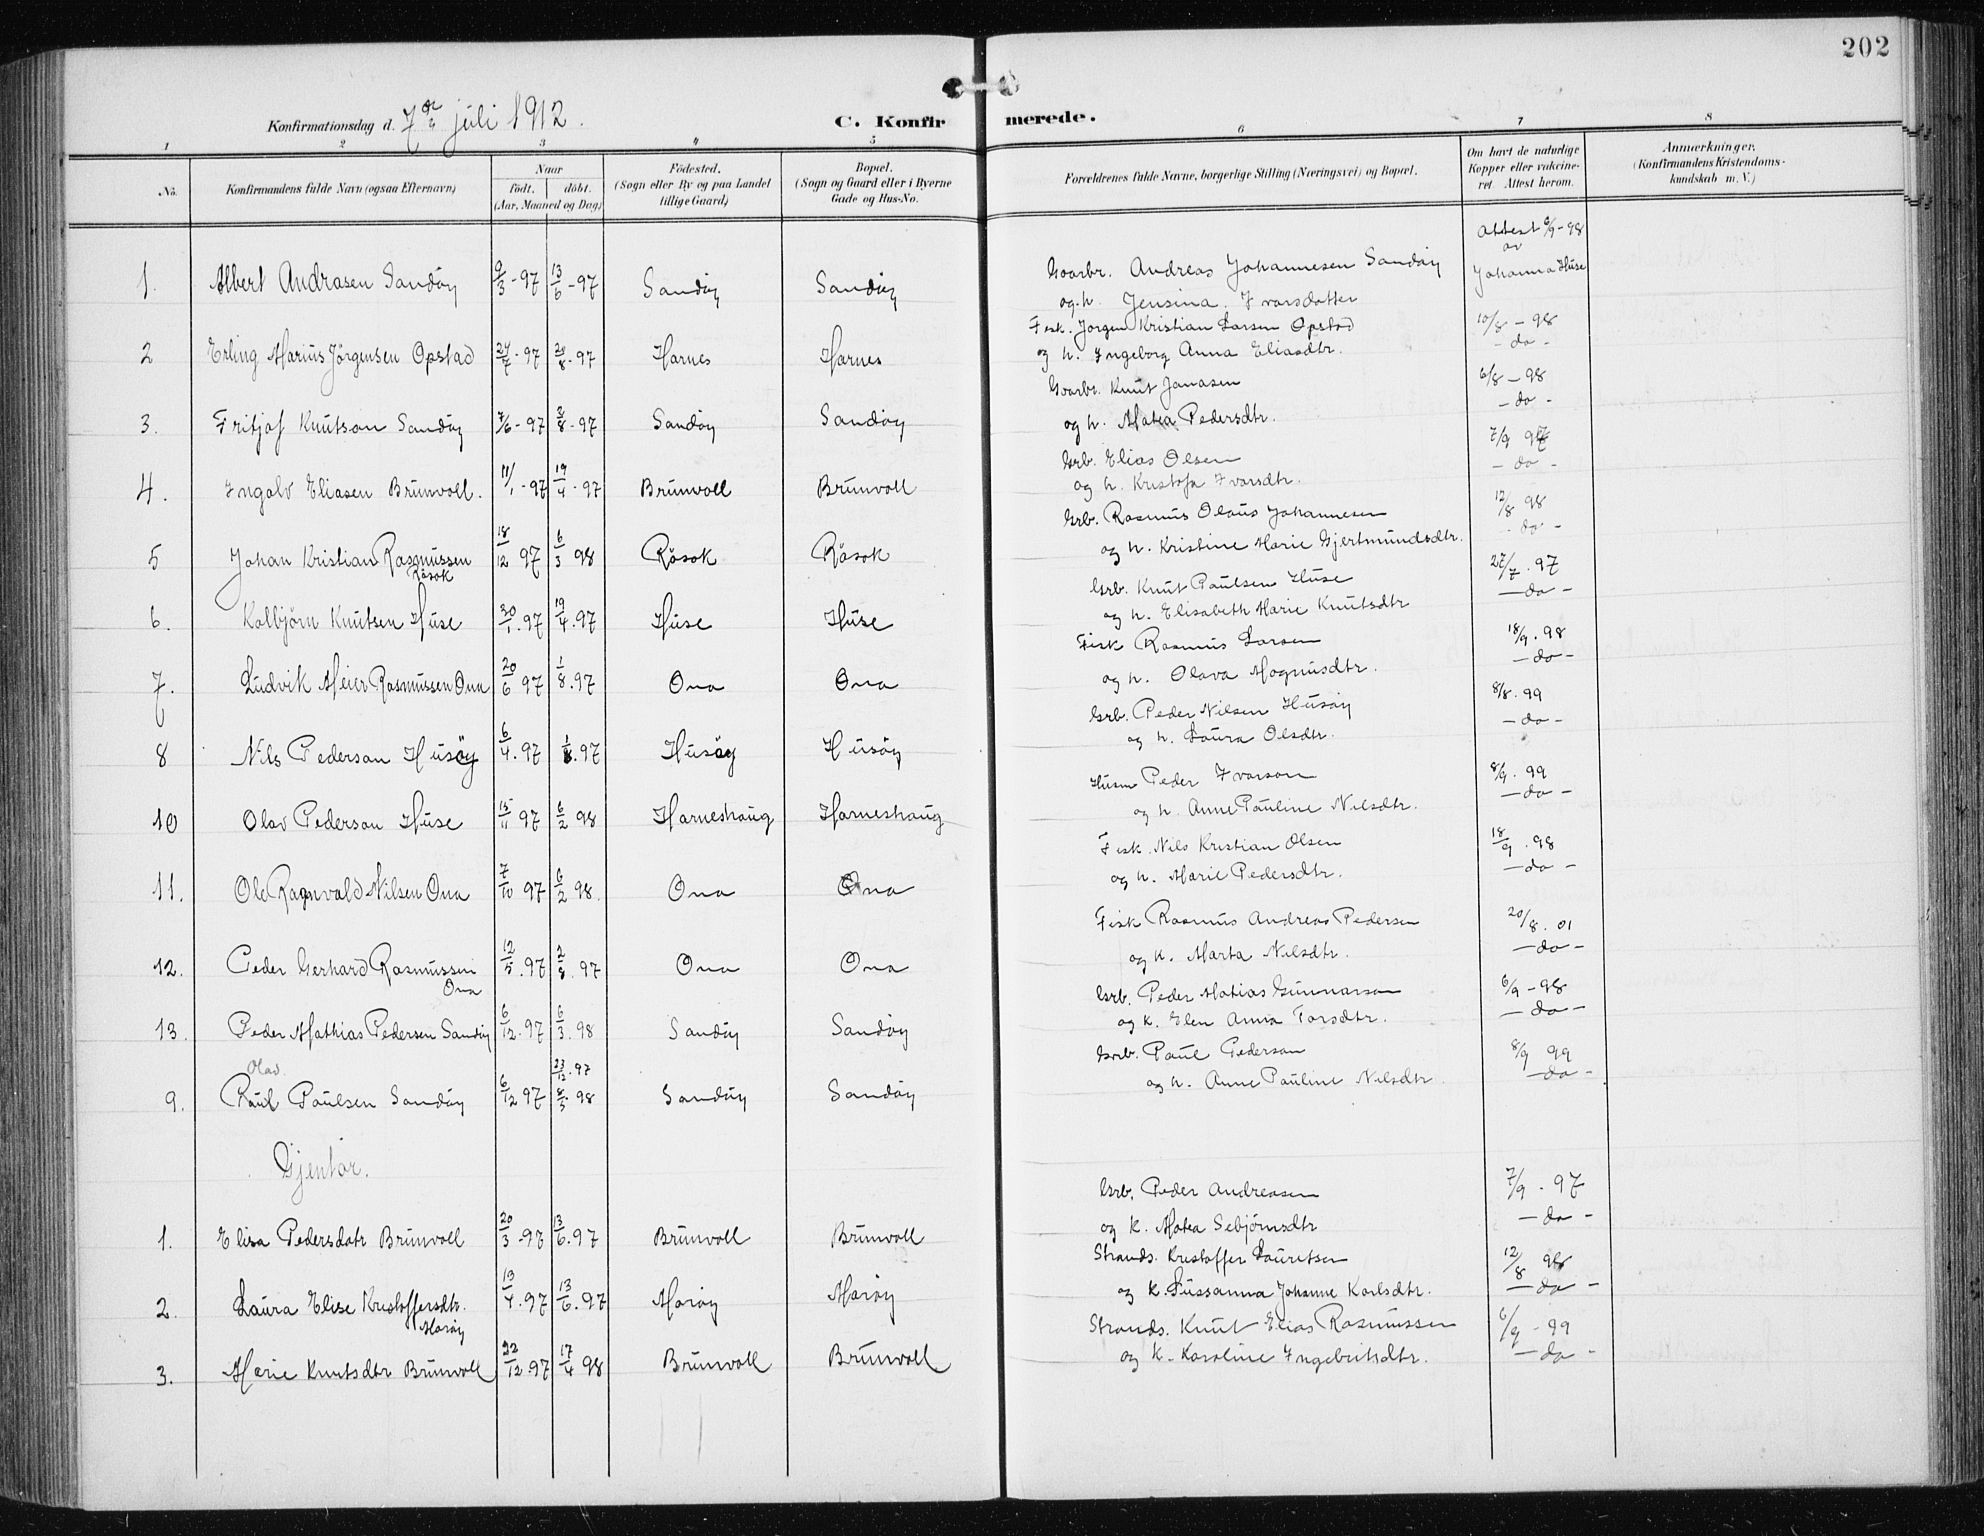 202
Konfirmationsdag d. 7de juli 1912.
C. Konfirmerede.
1 2 3 4 5 6 7 8
No. Konfirmandens fulde Navn (ogsaa Efternavn) Naar født. døbt. (Aar, Maaned og Dag) Fødested. (Sogn eller By og paa Landet tillige Gaard) Bopæl. (Sogn og Gaard eller i Byerne Gade og Hus-No. Forældrenes fulde Navne, borgerlige Stilling (Næringsvei) og Bopæl. Om havt de naturlige Kopper eller vakcineret. Attest herom. Anmerkninger. (Konfirmandens Kristendomskundskab m. V.)
1. Albert Andrasen Sandöy 9/3-97 13/6-97 Sandöy Sandöy Gaarbr. Andreas Johannesen Sandöy Attest 6/9-98 av
og h. Jensina Ivarsdatter Johanna Huse
2 Erling Marius Jörgensen Opstad 24/7-97 29/8-97 Harnes Harnes Fisk. Jorgen Kristian Larsen Opstad 10/8-98
og h. Ingeborg Anna Eliasdtr. -do-
3. Fritjof Knutson Sandöy 7/6-97 8/8-97 Sandöy Sandöy Gaarbr. Knut Janasen 6/8-98
og h. Matea Pedersdtr. -do-
4. Ingolv Eliasen Brunvoll. 11/1-97 19/4-97 Brunvoll Brunvoll Grb. Elias Olsen 7/9 97
og h. Kristofa Ivarsdtr. -do-
5 Johan Kristian Rasmussen Rösok 18/12 97 6/3 98 Rösok Rösok Grb. Rasmus Olaus Johannesen 12/8 98
og h. Kristine Marie Gjertmundsdtr. -do-
6. Kolbjörn Knutsen Huse 30/1.97 19/4.97 Huse Huse Grb. Knut Paulsen Huse 27/7.97
og h. Elisabeth Marie Knutsdtr -do-
7. Ludvik Meier Rasmussen Ona 20/6 97 1/8.97 Ona Ona Fisk Rasmus Larsen 18/9.98
og h. Olava Magnusdtr. -do-
8 Nils Pederson Husöy 6/4.97 1/8.97 Husöy Husöy Grb. Peder Nilsen Husöy 8/8.99
og h. Laura Olsdtr. -do-
10 Olav Pederson Huse 15/11 97 6/2 98 Harneshaug Harneshaug Husm Peder Ivarson 8/9.99
og h. Anne Pauline Nilsdtr. -do-
11. Ole Ragnvald Nilsen Ona 7/10 97 6/2 98. Ona Ona Fisk. Nils Kristian Olsen 18/9.98
og h. Marie Pedersdtr. -do-
12. Peder Gerhard Rasmussen Ona 12/5.97 2/8.97 Ona Ona Fisk Rasmus Andreas Pedersen 20/8.01
og k. Marta Nilsdtr. -do-
13. Peder Mathias Pedersen Sandöy 6/12.97 6/3.98 Sandöy Sandöy Grb. Peder Matias Gunnarson 6/9-98
og k. Elen Anna Torsdtr. -do-
Olav 23/12.97
9. Paul Paulsen Sandöy 6/12 97 8/5 98 Sandöy Sandöy Grb. Paul Pederson 8/9 99
og h. Anne Pauline Nilsdtr. -do-
Gjentor.
1. Elisa Pedersdotr Brunvoll 20/3-97 13/6.97 Brunvoll Brunvoll Grb. Peder Andreasen 7/9-97
og k. Matea Sebjörnsdtr -do-
2. Laura Elise Kristoffersdtr. Maröy 13/4.97 13/6.97 Maröy Maröy Strands. Kristoffer Lauritsen 12/8 98
og k. Sussanna Johanne Karlsdtr. -do-
3. Marie Knutsdtr Brunvoll 22/12.97 17/4 98 Brunvoll Brunvoll Strands. Knut Elias Rasmussen 6/9-99
og k. Karoline Ingebritsdtr. -do-